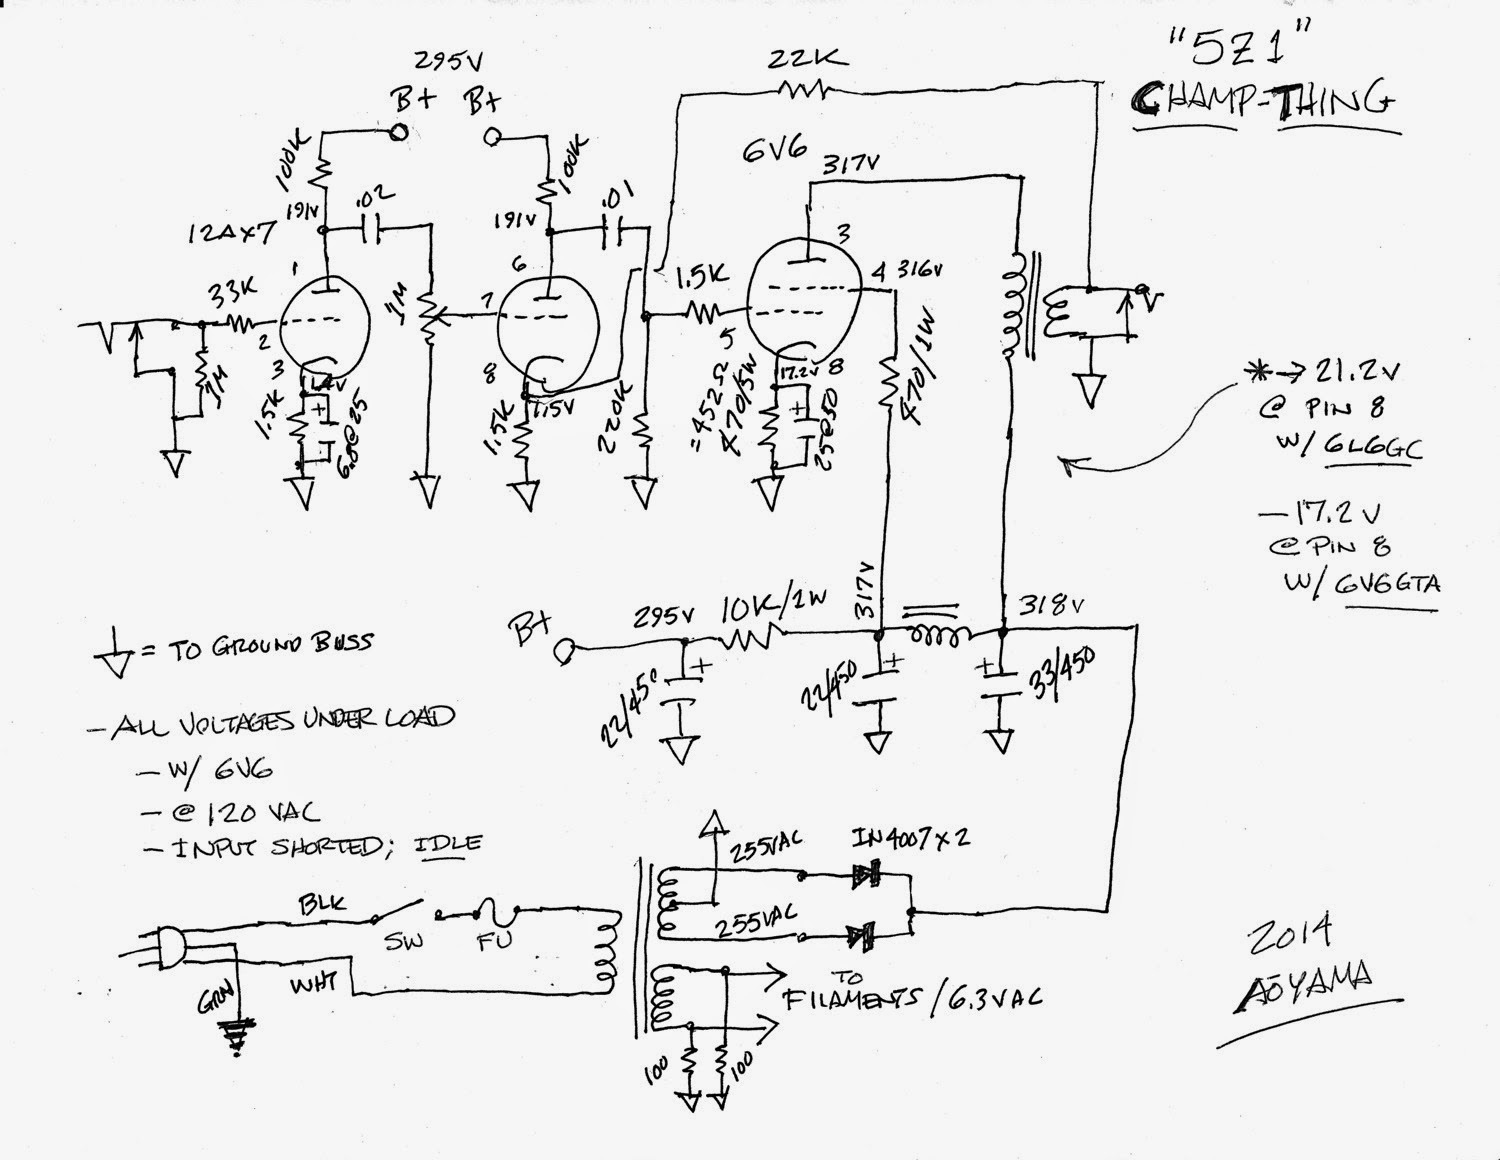 "5Z1"
CHAMP-THING
295V
B+ B+
22K
100K
100K
6V6
317V
.02
.01
191V
191V
12AX7
1
6
3
4 316V
33K
1M
7
1.5K
2
5
1M
3
8
17.2V 8
1.5V
1.5K
1.5K
220K
=452Ω
470/5W
25@50
470/1W
* → 21.2V
@ PIN 8
W/ 6L6GC
- 17.2V
@ PIN 8
W/ 6V6GTA
B+
295V
10K/1W
317V
318V
22/450
22/450
33/450
+
+
+
= TO GROUND BUSS
- ALL VOLTAGES UNDER LOAD
- W/ 6V6
- @ 120 VAC
- INPUT SHORTED; IDLE
255VAC
IN4007 x 2
255VAC
BLK
SW
FU
WHT
GRN
TO
FILAMENTS / 6.3VAC
100
100
2014
AOYAMA